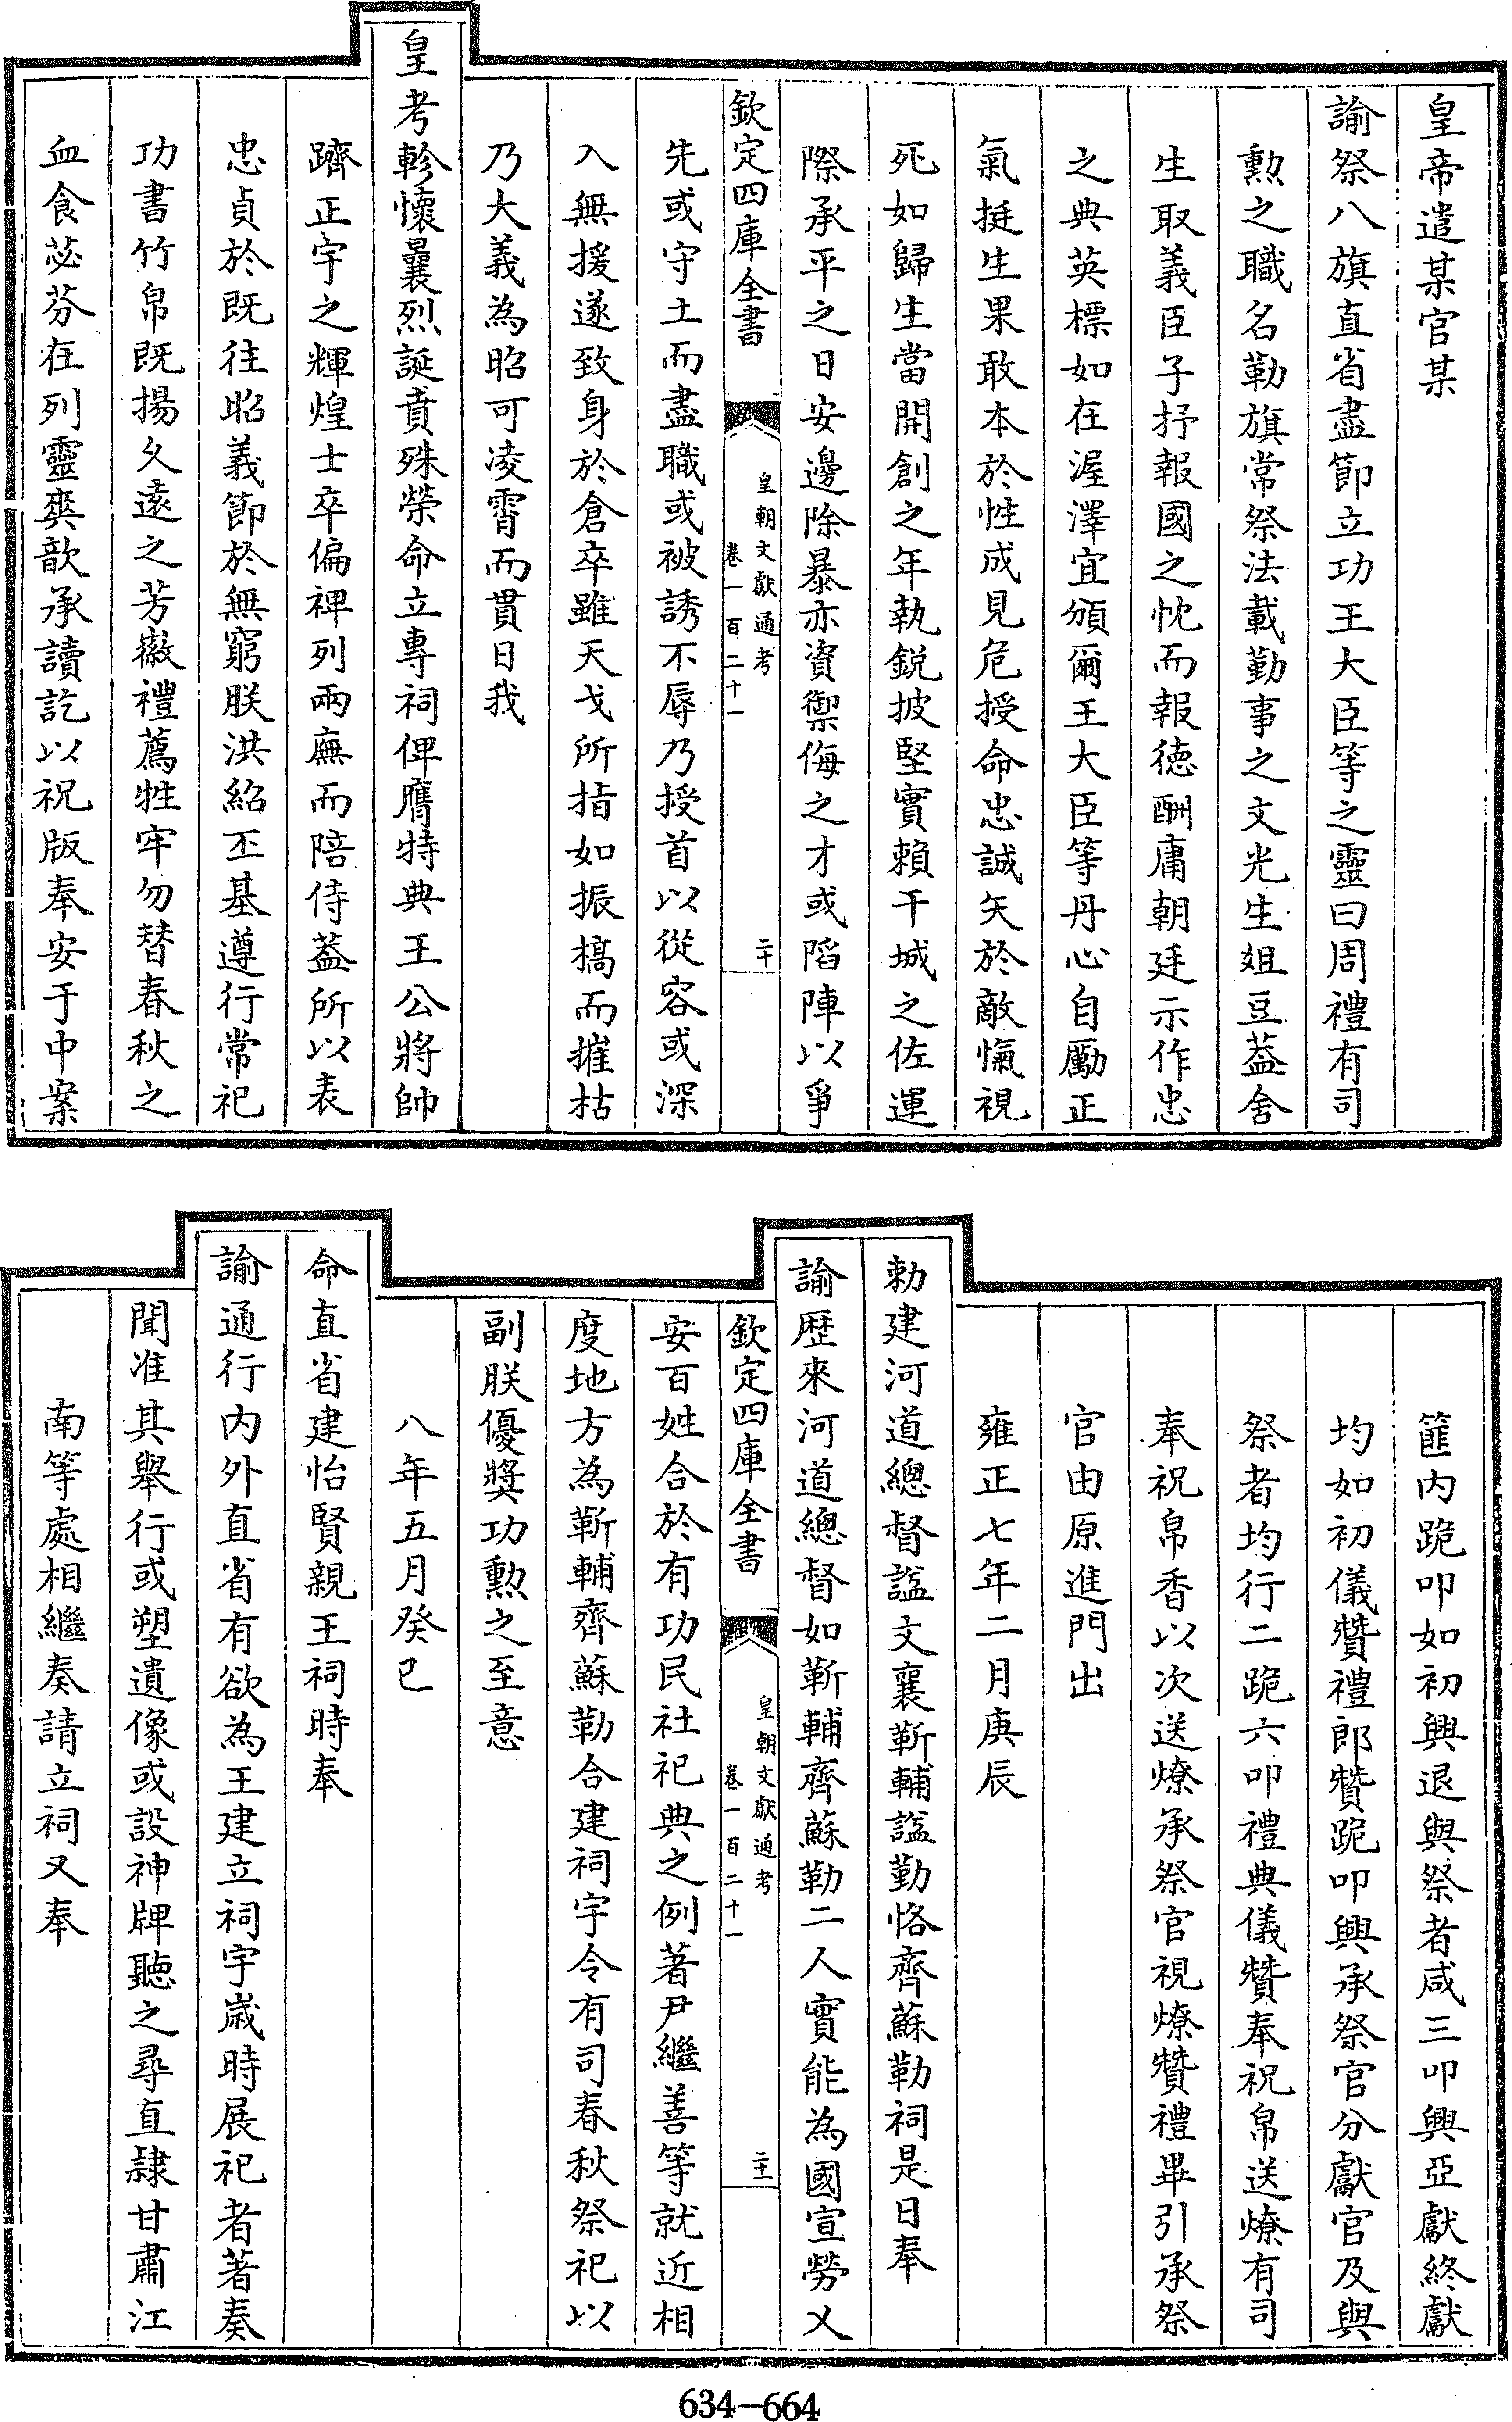 皇帝遣某官某
諭祭八旗直省盡節立功王大臣等之靈曰周禮有司
勲之職名勒旗常祭法載勤事之文光生俎豆葢舍
生取義臣子抒報國之忱而報徳酬庸朝廷示作忠
之典英標如在渥澤宜頒爾王大臣等丹心自勵正
氣挺生果敢本於性成見危授命忠誠矢於敵愾視
死如歸生當開創之年執鋭披堅實賴干城之佐運
際承平之日安邊除暴亦資禦侮之才或陷陣以爭
欽定四庫全書
皇朝文獻通考
卷一百二十一
二十
先或守土而盡職或被誘不辱乃授首以從容或深
入無援遂致身於倉卒雖天戈所指如振槁而摧枯
乃大義為昭可凌霄而貫日我
皇考軫懷曩烈誕賁殊榮命立專祠俾膺特典王公將帥
躋正宇之輝煌士卒偏裨列兩廡而陪侍葢所以表
忠貞於既往昭義節於無窮朕洪紹丕基遵行常祀
功書竹帛既揚久遠之芳徽禮薦牲牢勿替春秋之
血食苾芬在列靈爽歆承讀訖以祝版奉安于中案
篚内跪叩如初興退與祭者咸三叩興亞獻終獻
均如初儀贊禮郎贊跪叩興承祭官分獻官及與
祭者均行二跪六叩禮典儀贊奉祝帛送燎有司
奉祝帛香以次送燎承祭官視燎贊禮畢引承祭
官由原進門出
雍正七年二月庚辰
勅建河道總督諡文襄靳輔諡勤恪齊蘇勒祠是日奉
諭歴來河道總督如靳輔齊蘇勒二人實能為國宣勞乂
欽定四庫全書
皇朝文獻通考
卷一百二十一
二十一
安百姓合於有功民社祀典之例著尹繼善等就近相
度地方為靳輔齊蘇勒合建祠宇令有司春秋祭祀以
副朕優奬功勲之至意
八年五月癸巳
命直省建怡賢親王祠時奉
諭通行内外直省有欲為王建立祠宇歳時展祀者著奏
聞准其舉行或塑遺像或設神牌聽之尋直隷甘肅江
南等處相繼奏請立祠又奉
634-664